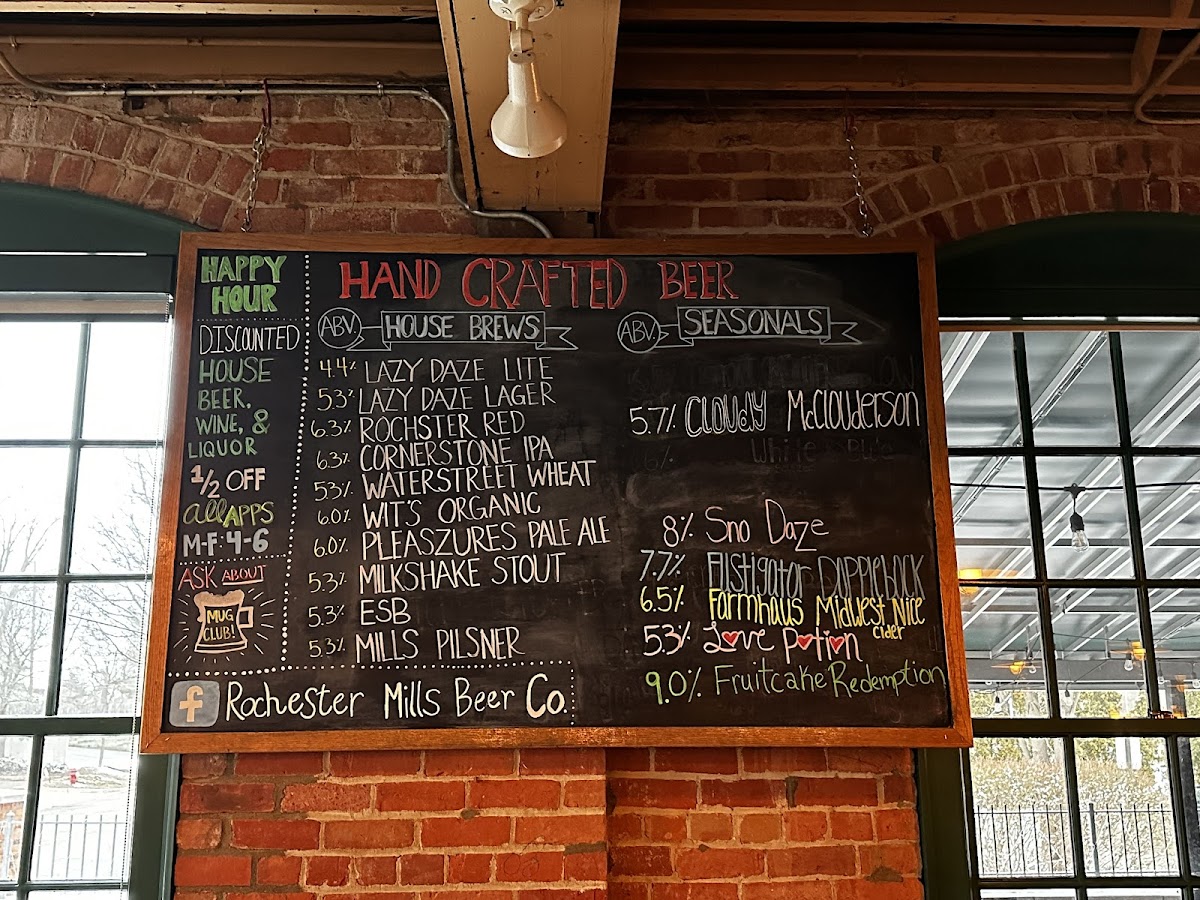 HAPPY
HOUR
DISCOUNTED
HOUSE
BEER,
WINE, &
LIQUOR
1/2 OFF
all APPS
M-F: 4-6
ASK ABOUT
MUG
CLUB!
HAND CRAFTED BEER
ABV. HOUSE BREWS
4.4% LAZY DAZE LITE
5.3% LAZY DAZE LAGER
6.3% ROCHSTER RED
6.3% CORNERSTONE IPA
5.3% WATERSTREET WHEAT
6.0% WIT'S ORGANIC
6.0% PLEASZURES PALE ALE
5.3% MILKSHAKE STOUT
5.3% ESB
5.3% MILLS PILSNER
ABV. SEASONALS
5.7% Cloudy McClouderson
8% Sno Daze
7.7% Dapplebock
6.5% Farmhaus Midwest Nice
cider
5.3% Love Potion
9.0% Fruitcake Redemption
f Rochester Mills Beer Co.